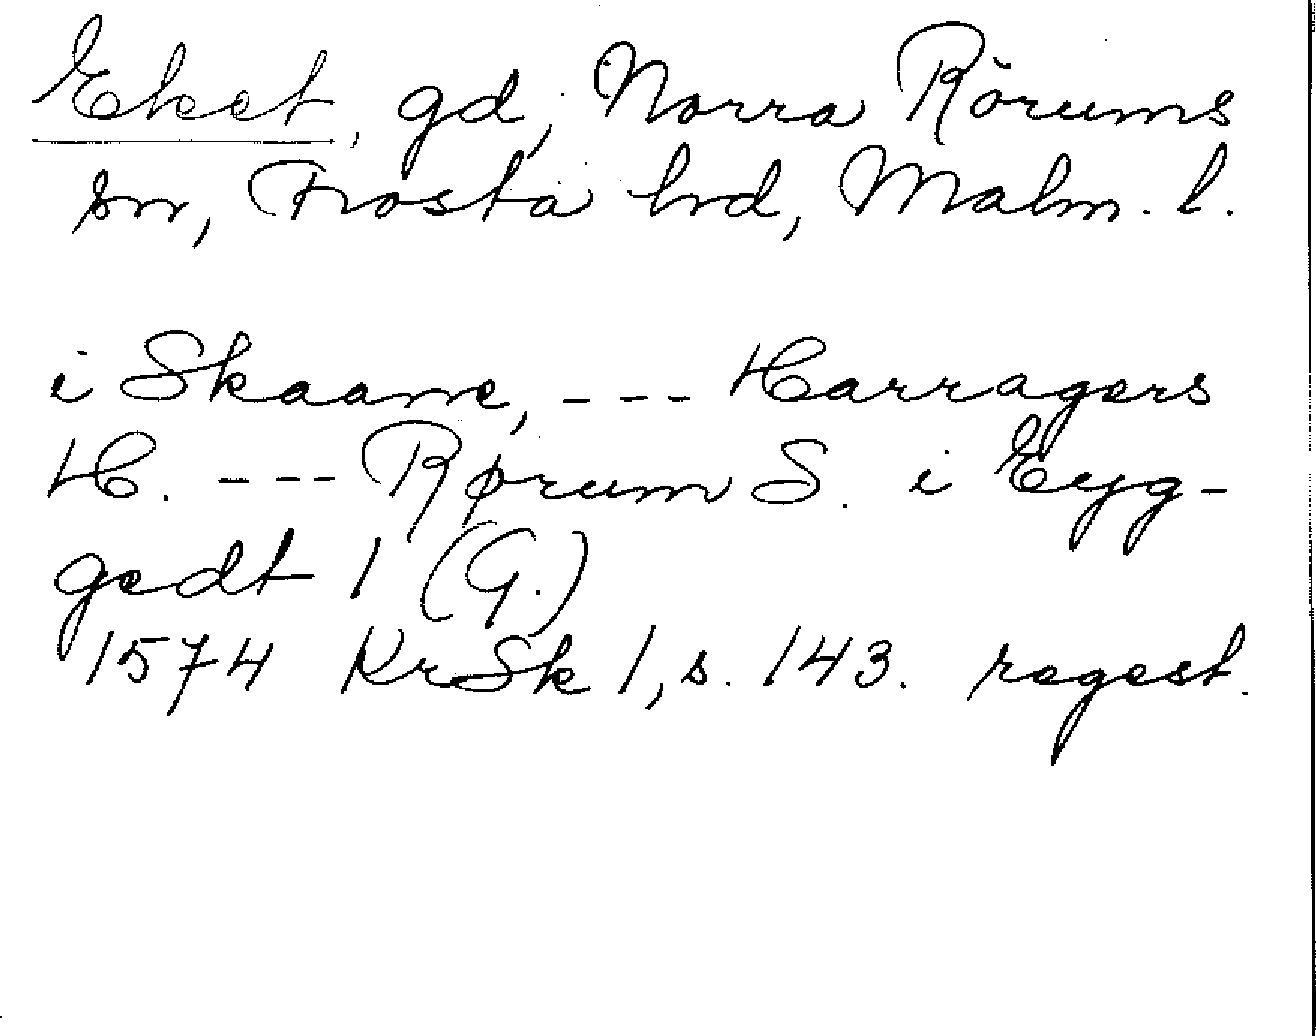 Eket, gd, Norra Rörums
sn, Frosta hd, Malm. l.
i Skaane, --- Harragers
H. --- Rørum S. i Eyg-
gedt 1 (G.)
1574 KrSk 1, s. 143. regest.